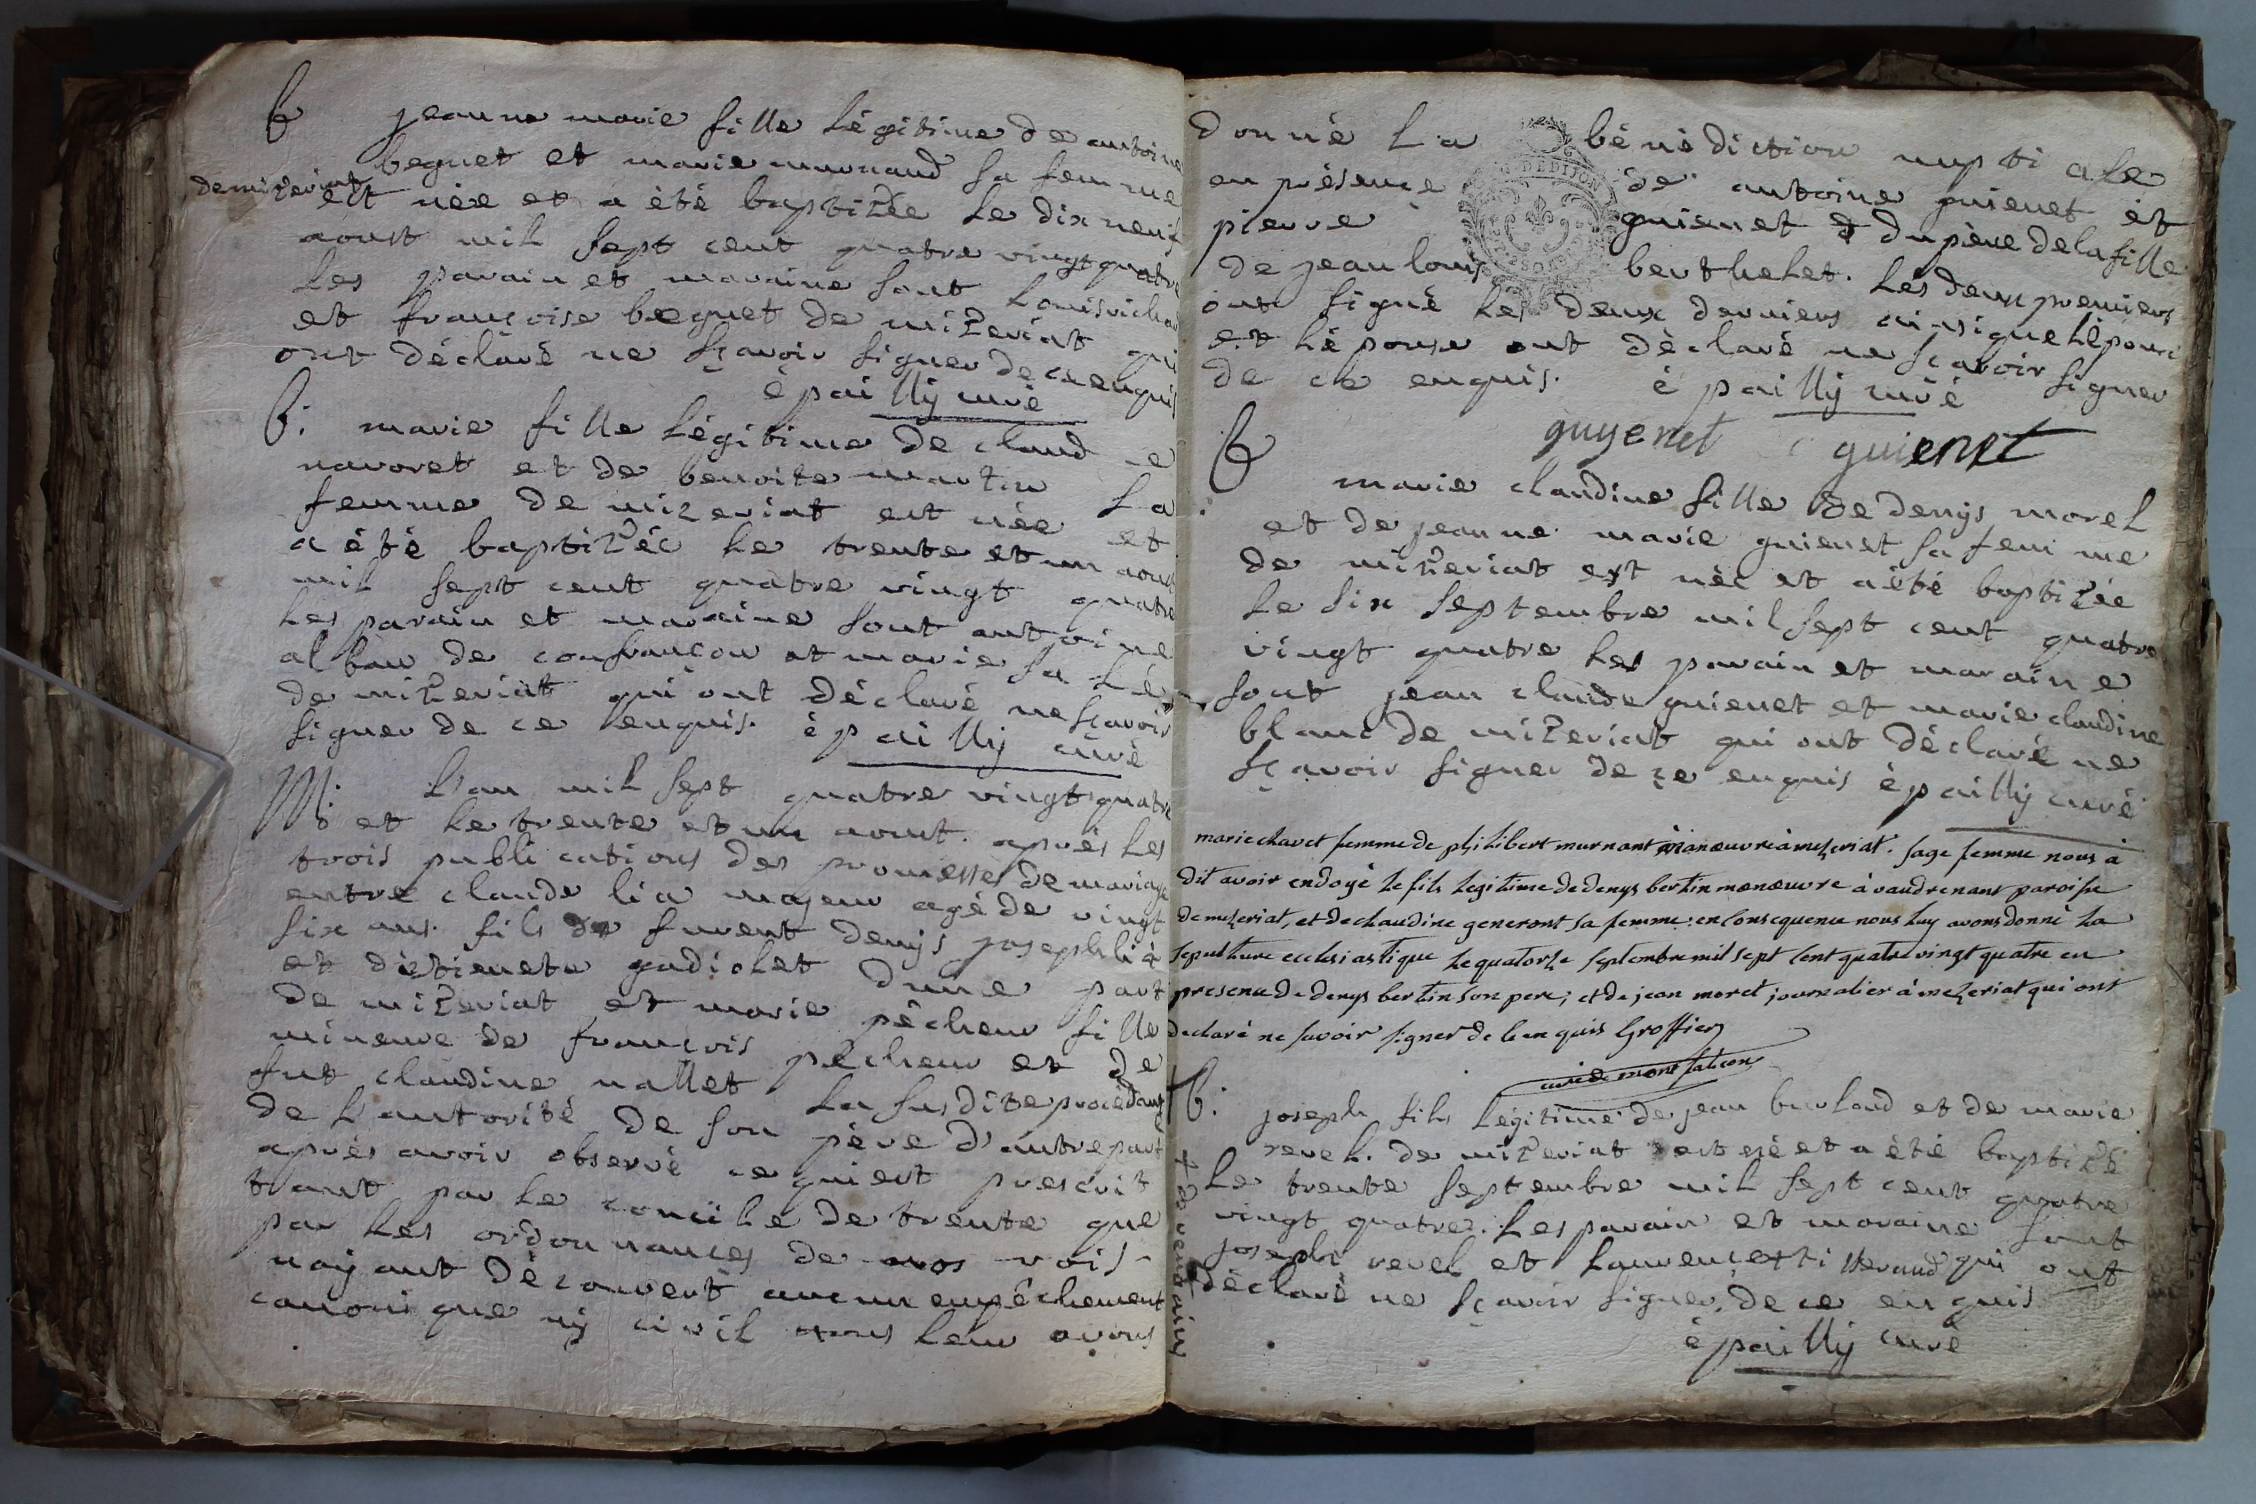 B jeanne marie fille légitime de antoine
beguet et marie murnaud sa femme
de mizeriat
est née et a été baptizée le dix neuf
aoust mil sept cent quatre vingt quatre
les parain et maraine sont Louis richar
et françoise beguet de mizeriat qui
ont déclaré ne sçavoir signer de ce enquis
épailly curé
B: marie fille légitime de claud e
navoret et de benoite martin sa
femme de mizeriat est née et
a été baptizée le trente et un aoust
mil sept cent quatre vingt quatre
les parain et maraine sont antoine
alban de confrançon et marie
de mizeriat qui ont déclaré ne sçavoir
signer de ce enquis. épailly curé
M: L'an mil sept quatre vingt quatre
et le trente et un aout. après les
trois publications des promesses de mariage
entre claude lia majeur agé de vingt
six ans. fils de furent denys joseph lià
et d'étienete gadiolet d'une part
de mizeriat et marie pêcheur fille
mineure de françois pêcheur et de
fut claudine nallet la susdite procédant
de l'autorité de son père d'autre part
après avoir observé ce qui est prescrit
tant par le concile de trente que
par les ordonnances de nos rois.
nayant découvert aucun empêchement
canonique ny civil nous leur avons
donné la bénédiction nuptiale
en présence de antoine guienet et
pierre guienet & du père de la fille
de jean louis berthelet. les deux premiers
ont signé les deux derniers ainsi que l'épouse
et l'épouse ont déclaré ne sçavoir signer
de ce enquis. épailly curé
guyenet guienet
B marie claudine fille de denys morel
et de jeanne marie guienet sa femme
de mizeriat est née et a été baptizée
le six septembre mil sept cent quatre
vingt quatre les parain et maraine
sont jean claude guienet et marie claudine
blanc de mizeriat qui ont déclaré ne
sçavoir signer de ce enquis épailly curé
marie chavet femme de philibert murnant manœuvre à mezeriat. sage femme nous a
dit avoir endoyé le fils legitime de denys bertin manœuvre à vaudrenant paroisse
de mezeriat, et de claudine generont sa femme: en consequence nous luy avons donné la
sepulture ecclesiastique le quatorze septembre mil sept cent quatre vingt quatre en
presence de denys bertin son pere; et de jean morel journalier à mezeriat qui ont
declaré ne savoir signer de ce enquis Groffier
curé de montfalcon
B: joseph fils légitime de jean burland et de marie
revel. de mizeriat est né et a été baptizé
le trente septembre mil sept cent quatre
vingt quatre. les parain et maraine sont
joseph revel et laurence qui ont
déclaré ne sçavoir signer. de ce enquis
épailly curé
DEDIJON